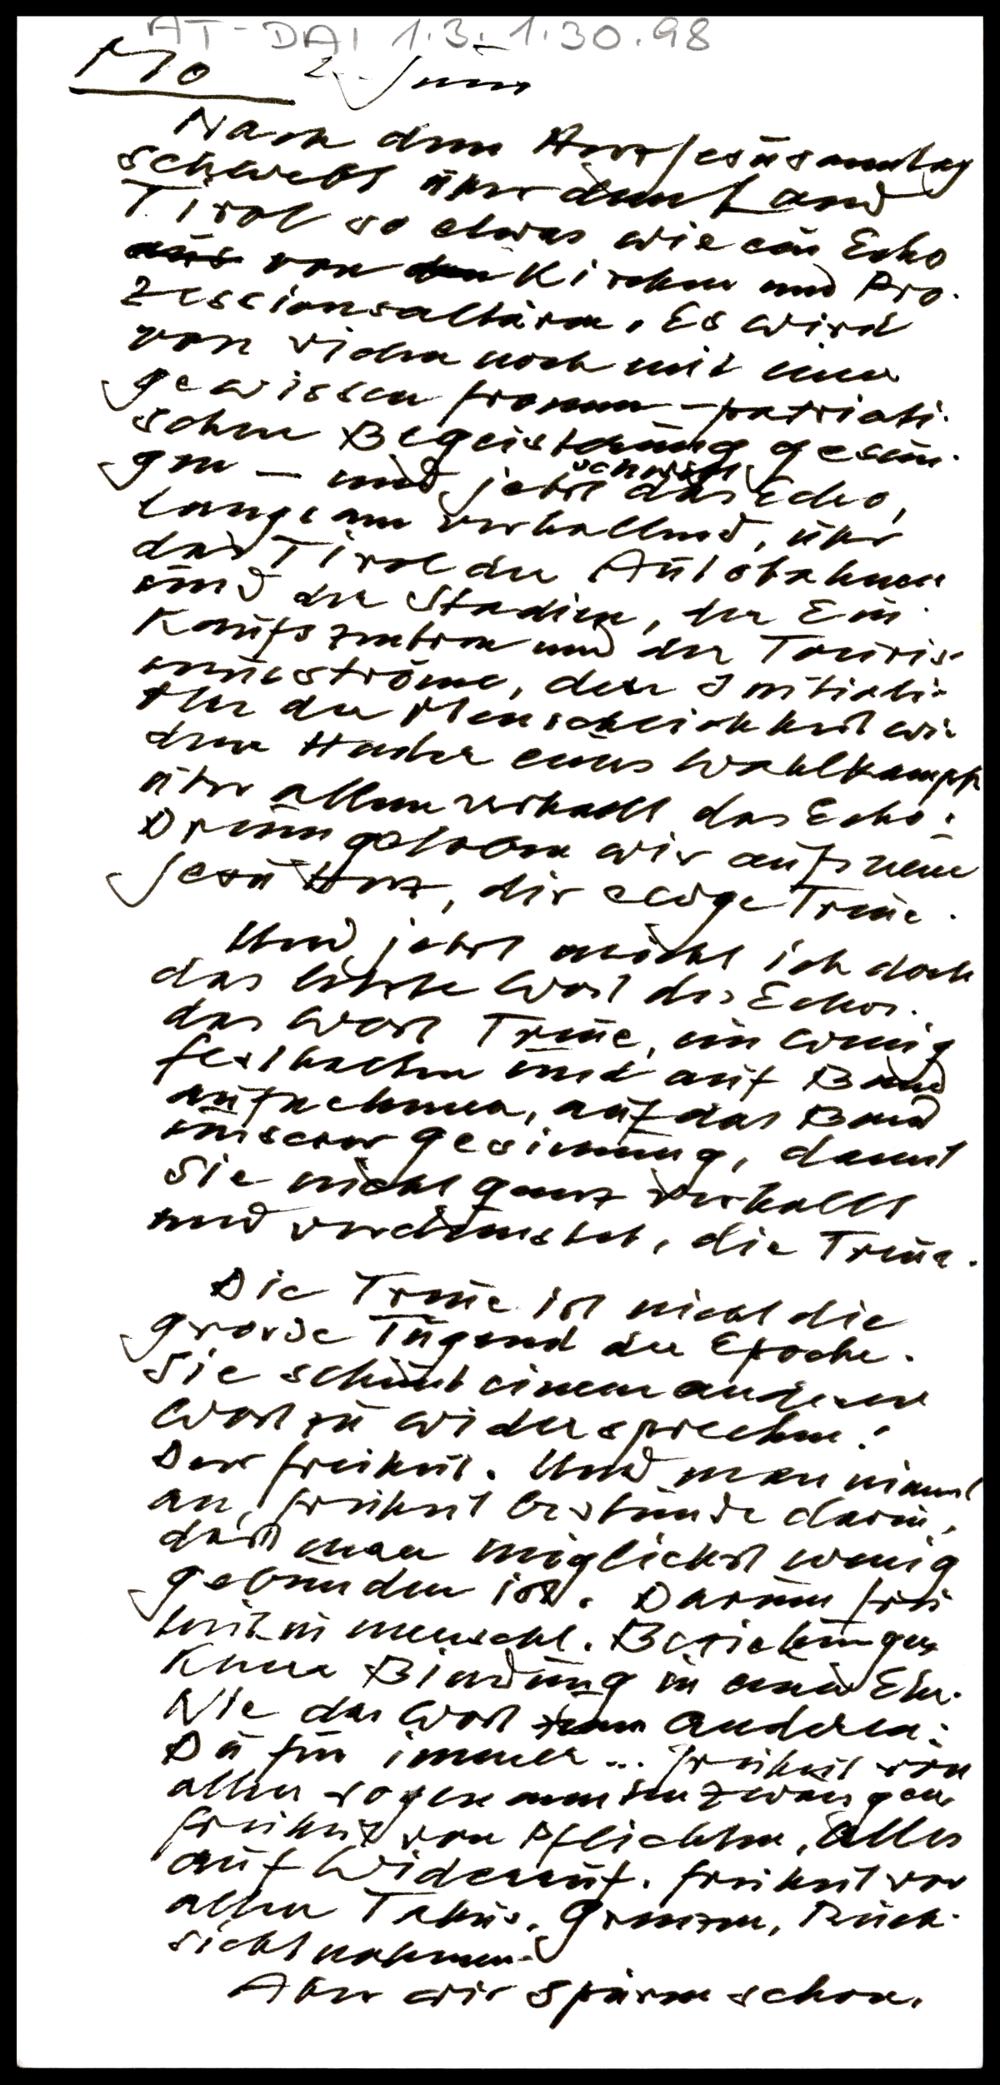 AT-DAI 1.3.1.30.98
Mo 2. Juni
Nach dem Herz Jesusonntag
schwebt über dem Land
Tirol so etwas wie ein Echo
aus von den Kirchen und Pro-
zessionsaltären. Es wird
von vielen noch mit einer
gewissen fromm-patrioti-
schen Begeisterung gesun-
gen - und jetzt schwebt das Echo,
langsam verhallend, über
das Tirol der Autobahnen
und der Stadien, der Ein-
kaufszentren und der Touris-
musströme, der Initiati-
ven der Menschlichkeit wie
dem Hader eines Wahlkampfs
über allem verhallt das Echo:
Drum geloben wir aufs neue
Jesu Herz, dir ewge Treue.
Und jetzt möcht ich doch
das letzte Wort des Echos.
das Wort Treue, ein wenig
festhalten und auf Band
aufnehmen, auf das Band
unserer Gesinnung, damit
sie nicht ganz verhallt
und verdunstet, die Treue.
Die Treue ist nicht die
grosse Tugend der Epoche.
Sie scheint einem anderen
Wort zu widersprechen:
Der Freiheit. Und man nimmt
an, Freiheit bestünde darin,
daß man möglichst wenig
gebunden ist. Darum Frei
heit in menschl. Beziehungen
Keine Bindung in einer Ehe.
Nie das Wort zum anderen:
Du für immer... Freiheit von
allen sogenannten Zwängen
Freiheit von Pflichten, Alles
auf Widerruf. Freiheit von
allen Tabus, Grenzen, Rück-
sichtnahmen
Aber wir spüren schon,